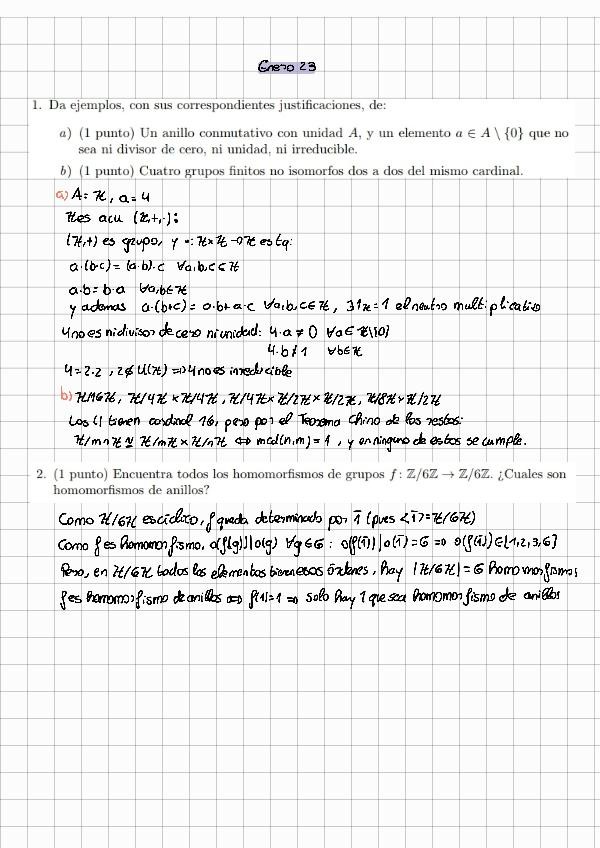 Enero 23
1. Da ejemplos, con sus correspondientes justificaciones, de:
a) (1 punto) Un anillo conmutativo con unidad A, y un elemento a ∈ A \ {0} que no
sea ni divisor de cero, ni unidad, ni irreducible.
b) (1 punto) Cuatro grupos finitos no isomorfos dos a dos del mismo cardinal.
a) A = ℤ, a = 4
ℤ es acu (ℤ,+,·):
(ℤ,+) es grupo, y ·: ℤ×ℤ→ℤ es tq:
a·(b·c) = (a·b)·c ∀a,b,c ∈ ℤ
a·b = b·a ∀a,b ∈ ℤ
y además a·(b+c) = a·b + a·c ∀a,b,c ∈ ℤ, ∃1ℤ = 1 el neutro multiplicativo
4 no es ni divisor de cero ni unidad: 4·a ≠ 0 ∀a ∈ ℤ\{0}
4·b ≠ 1 ∀b ∈ ℤ
4 = 2·2, 2 ∉ U(ℤ) ⇒ 4 no es irreducible
b) ℤ/16ℤ, ℤ/4ℤ × ℤ/4ℤ, ℤ/4ℤ × ℤ/2ℤ × ℤ/2ℤ, ℤ/8ℤ × ℤ/2ℤ
Los 4 tienen cardinal 16, pero por el Teorema Chino de los restos:
ℤ/mnℤ ≅ ℤ/mℤ × ℤ/nℤ ⇔ mcd(n,m) = 1, y en ninguno de estos se cumple.
2. (1 punto) Encuentra todos los homomorfismos de grupos f : ℤ/6ℤ → ℤ/6ℤ. ¿Cuales son
homomorfismos de anillos?
Como ℤ/6ℤ es cíclico, f queda determinado por 1̄ (pues <1̄> = ℤ/6ℤ)
Como f es homomorfismo, o(f(g)) | o(g) ∀g ∈ G : o(f(1̄)) | o(1̄) = 6 ⇒ o(f(1̄)) ∈ {1,2,3,6}
Pero, en ℤ/6ℤ todos los elementos tienen esos órdenes, hay |ℤ/6ℤ| = 6 homomorfismos
f es homomorfismo de anillos ⇔ f(1) = 1 ⇒ solo hay 1 que sea homomorfismo de anillos